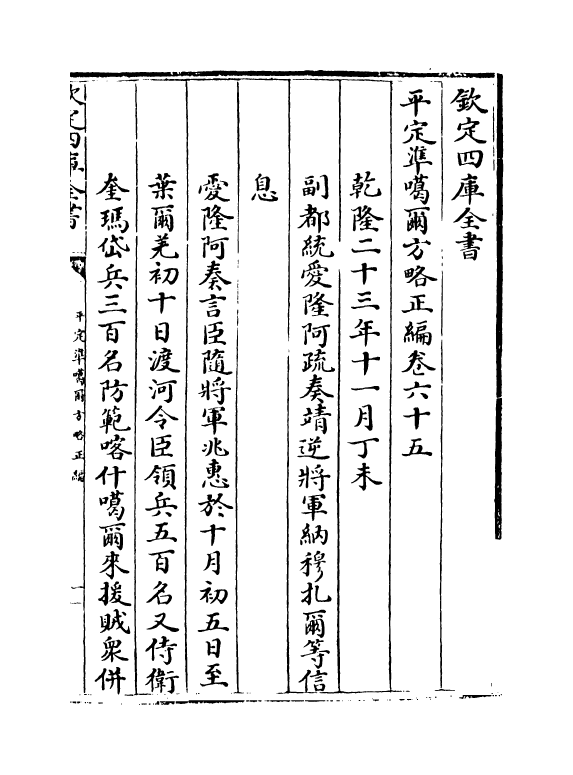 欽定四庫全書
平定準噶爾方略正編卷六十五
乾隆二十三年十一月丁未
副都統愛隆阿疏奏靖逆將軍納穆扎爾等信
息
愛隆阿奏言臣隨將軍兆惠於十月初五日至
葉爾羌初十日渡河令臣領兵五百名又侍衛
奎瑪岱兵三百名防範喀什噶爾來援賊衆併
欽定四庫全書
平定準噶爾方略正編
一